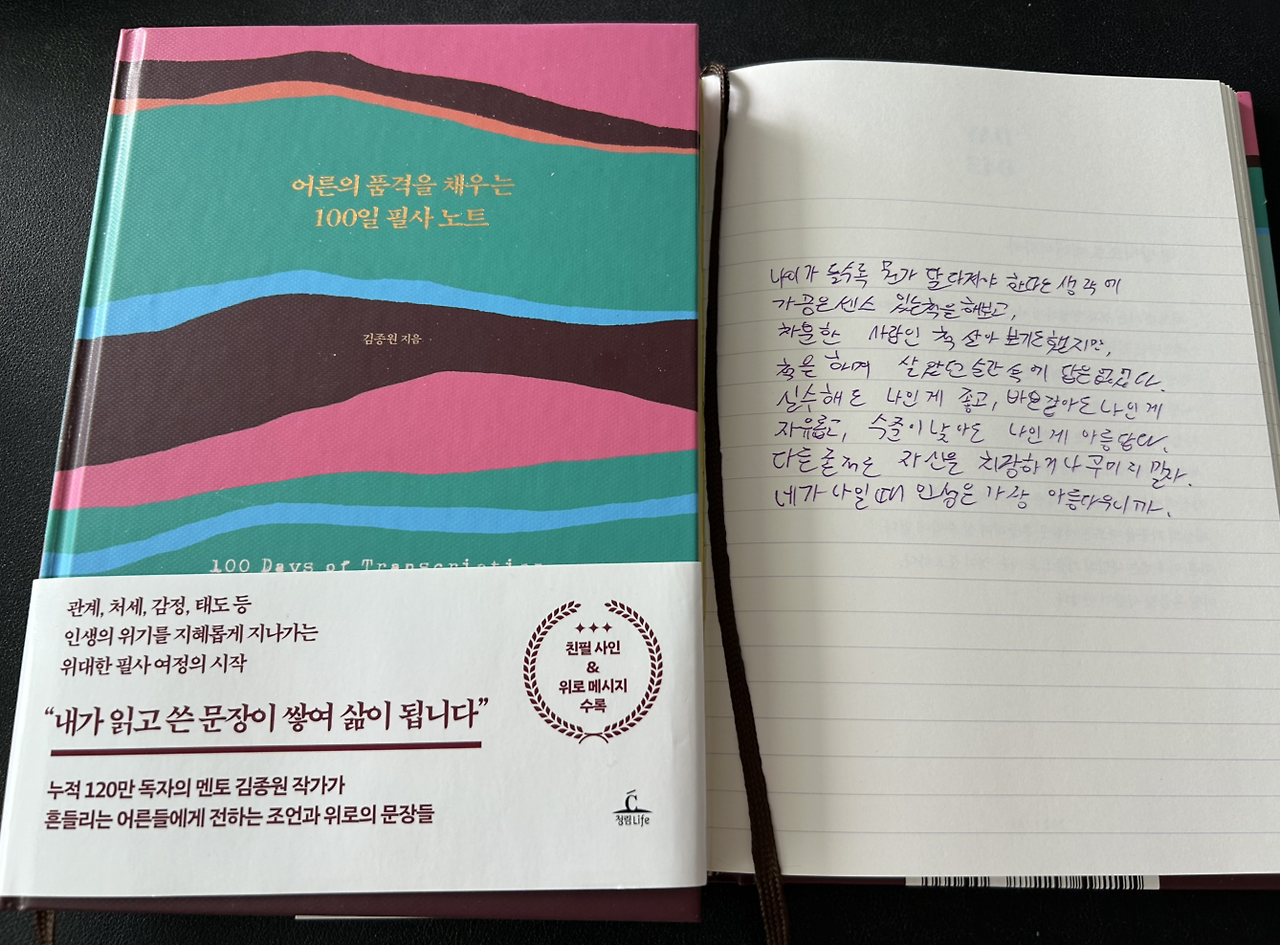 어른의 품격을 채우는
100일 필사 노트
김종원 지음
100 Days of Transcription
관계, 처세, 감정, 태도 등
인생의 위기를 지혜롭게 지나가는
위대한 필사 여정의 시작
“내가 읽고 쓴 문장이 쌓여 삶이 됩니다”
누적 120만 독자의 멘토 김종원 작가가
흔들리는 어른들에게 전하는 조언과 위로의 문장들
친필 사인
&
위로 메시지
수록
청림Life
나이가 들수록 뭔가 달라져야 한다는 생각에
가끔은 센스 있는 척을 해보고,
차분한 사람인 척 살아 보기도 했지만,
척을 하며 살았던 순간 속에 답은 없었다.
실수해도 나인 게 좋고, 바보같아도 나인 게
자유롭고, 수준이 낮아도 나인 게 아름답다.
다른 존재로 자신을 치장하거나 꾸미지 말라.
네가 너일 때 인생은 가장 아름다우니까.